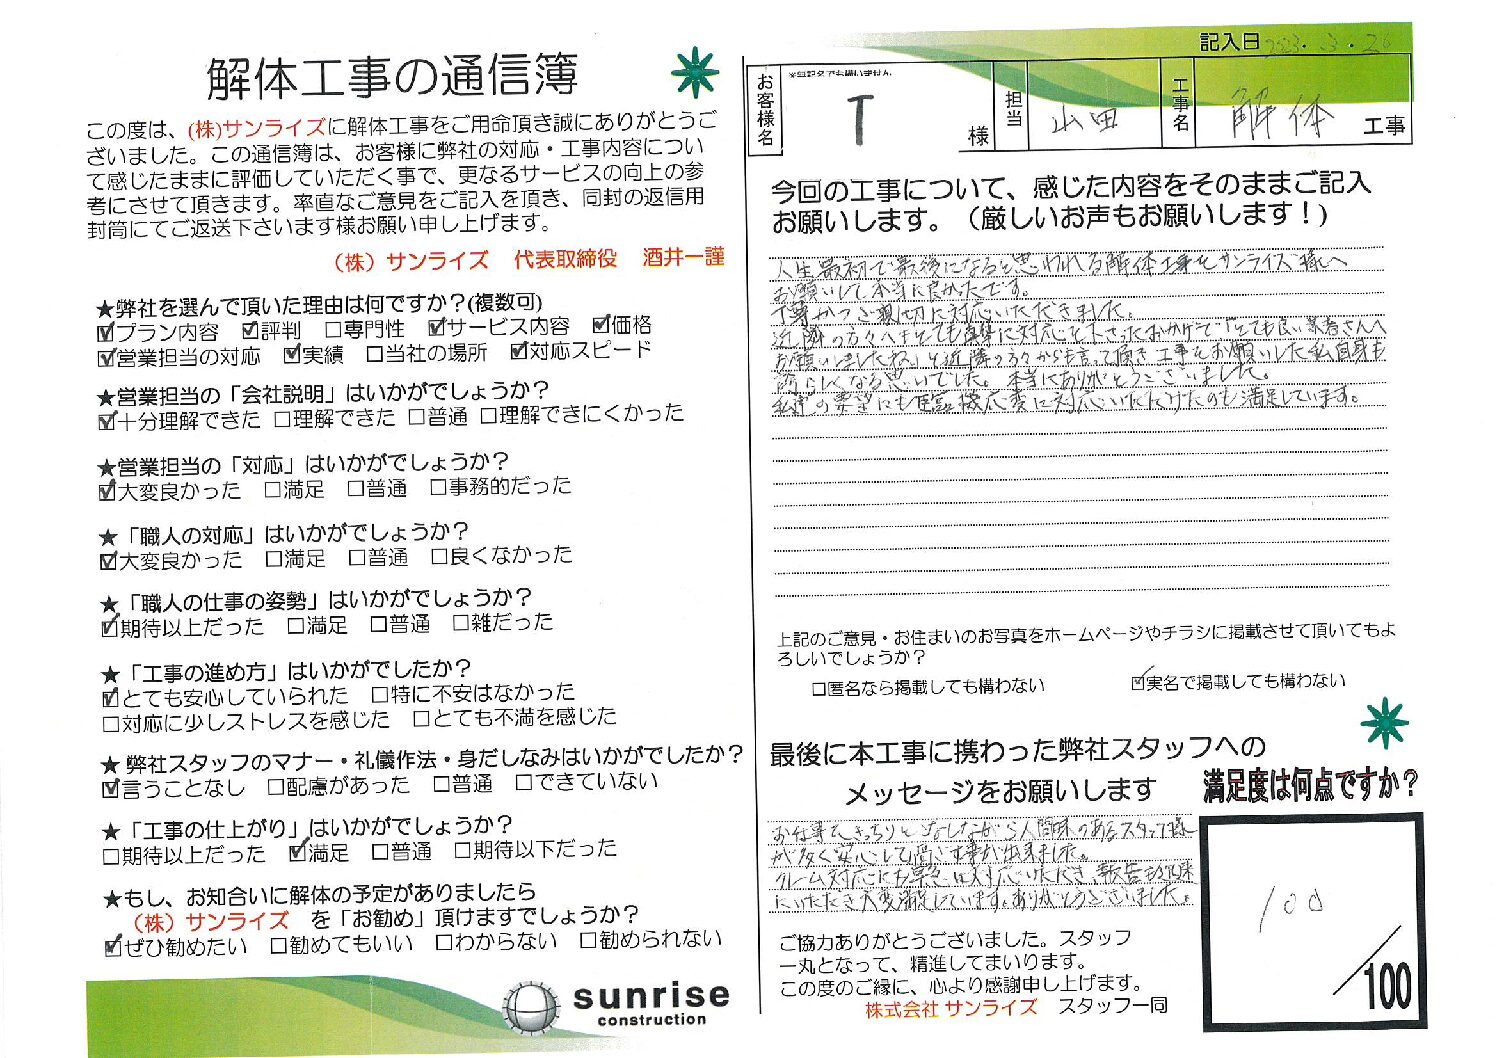 解体工事の通信簿
この度は、(株)サンライズに解体工事をご用命頂き誠にありがとうご
ざいました。この通信簿は、お客様に弊社の対応・工事内容につい
て感じたままに評価していただく事で、更なるサービスの向上の参
考にさせて頂きます。率直なご意見をご記入を頂き、同封の返信用
封筒にてご返送下さいます様お願い申し上げます。
（株）サンライズ 代表取締役 酒井一謹
★弊社を選んで頂いた理由は何ですか？(複数可)
☑プラン内容 ☑評判 □専門性 ☑サービス内容 ☑価格
☑営業担当の対応 ☑実績 □当社の場所 ☑対応スピード
★営業担当の「会社説明」はいかがでしょうか？
☑十分理解できた □理解できた □普通 □理解できにくかった
★営業担当の「対応」はいかがでしょうか？
☑大変良かった □満足 □普通 □事務的だった
★「職人の対応」はいかがでしょうか？
☑大変良かった □満足 □普通 □良くなかった
★「職人の仕事の姿勢」はいかがでしょうか？
☑期待以上だった □満足 □普通 □雑だった
★「工事の進め方」はいかがでしたか？
☑とても安心していられた □特に不安はなかった
□対応に少しストレスを感じた □とても不満を感じた
★弊社スタッフのマナー・礼儀作法・身だしなみはいかがでしたか？
☑言うことなし □配慮があった □普通 □できていない
★「工事の仕上がり」はいかがでしょうか？
□期待以上だった ☑満足 □普通 □期待以下だった
★もし、お知合いに解体の予定がありましたら
（株）サンライズ を「お勧め」頂けますでしょうか？
☑ぜひ勧めたい □勧めてもいい □わからない □勧められない
sunrise
construction
記入日 2023.3.26
お客様名 ※無記名でも構いません。 T 様 担当 山田 工事名 解体 工事
今回の工事について、感じた内容をそのままご記入
お願いします。（厳しいお声もお願いします！）
人生最初で最後になると思われる解体工事をサンライズ様へ
お願いして本当に良かったです。
丁寧かつご親切に対応いただきました。
近隣の方々へもとても丁寧に対応を下さったおかげで「とても良い業者さんへ
お願いしましたね」と近隣の方々からも言って頂き工事をお願いした私自身も
誇らしくなる思いでした。本当にありがとうございました。
私達の要望にも臨機応変に対応いただけたのも満足しています。
上記のご意見・お住まいのお写真をホームページやチラシに掲載させて頂いてもよ
ろしいでしょうか？
□匿名なら掲載しても構わない ☑実名で掲載しても構わない
最後に本工事に携わった弊社スタッフへの
メッセージをお願いします
お仕事をきっちりとこなしながら人間味のあるスタッフ様
が多く安心して過ごす事が出来ました。
クレーム対応にも早急に対応いただき、報告も
にいただき大変満足しています。ありがとうございました。
満足度は何点ですか？
100
/100
ご協力ありがとうございました。スタッフ
一丸となって、精進してまいります。
この度のご縁に、心より感謝申し上げます。
株式会社 サンライズ スタッフ一同